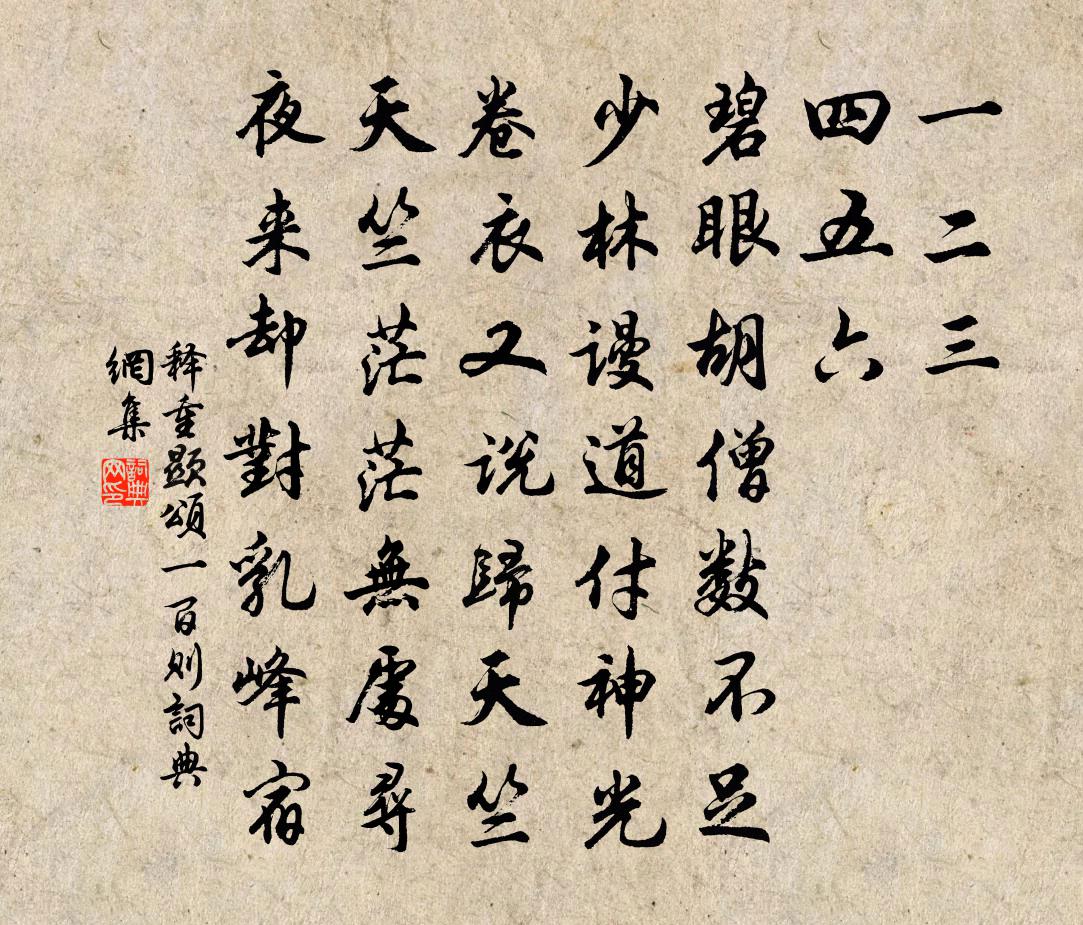 一二三
四五六
碧眼胡僧數不足
少林謾道付神光
卷衣又説歸天竺
天竺茫茫無處尋
夜来却對乳峰宿
释重顯頌一百则詞典
網集
詞典
网印